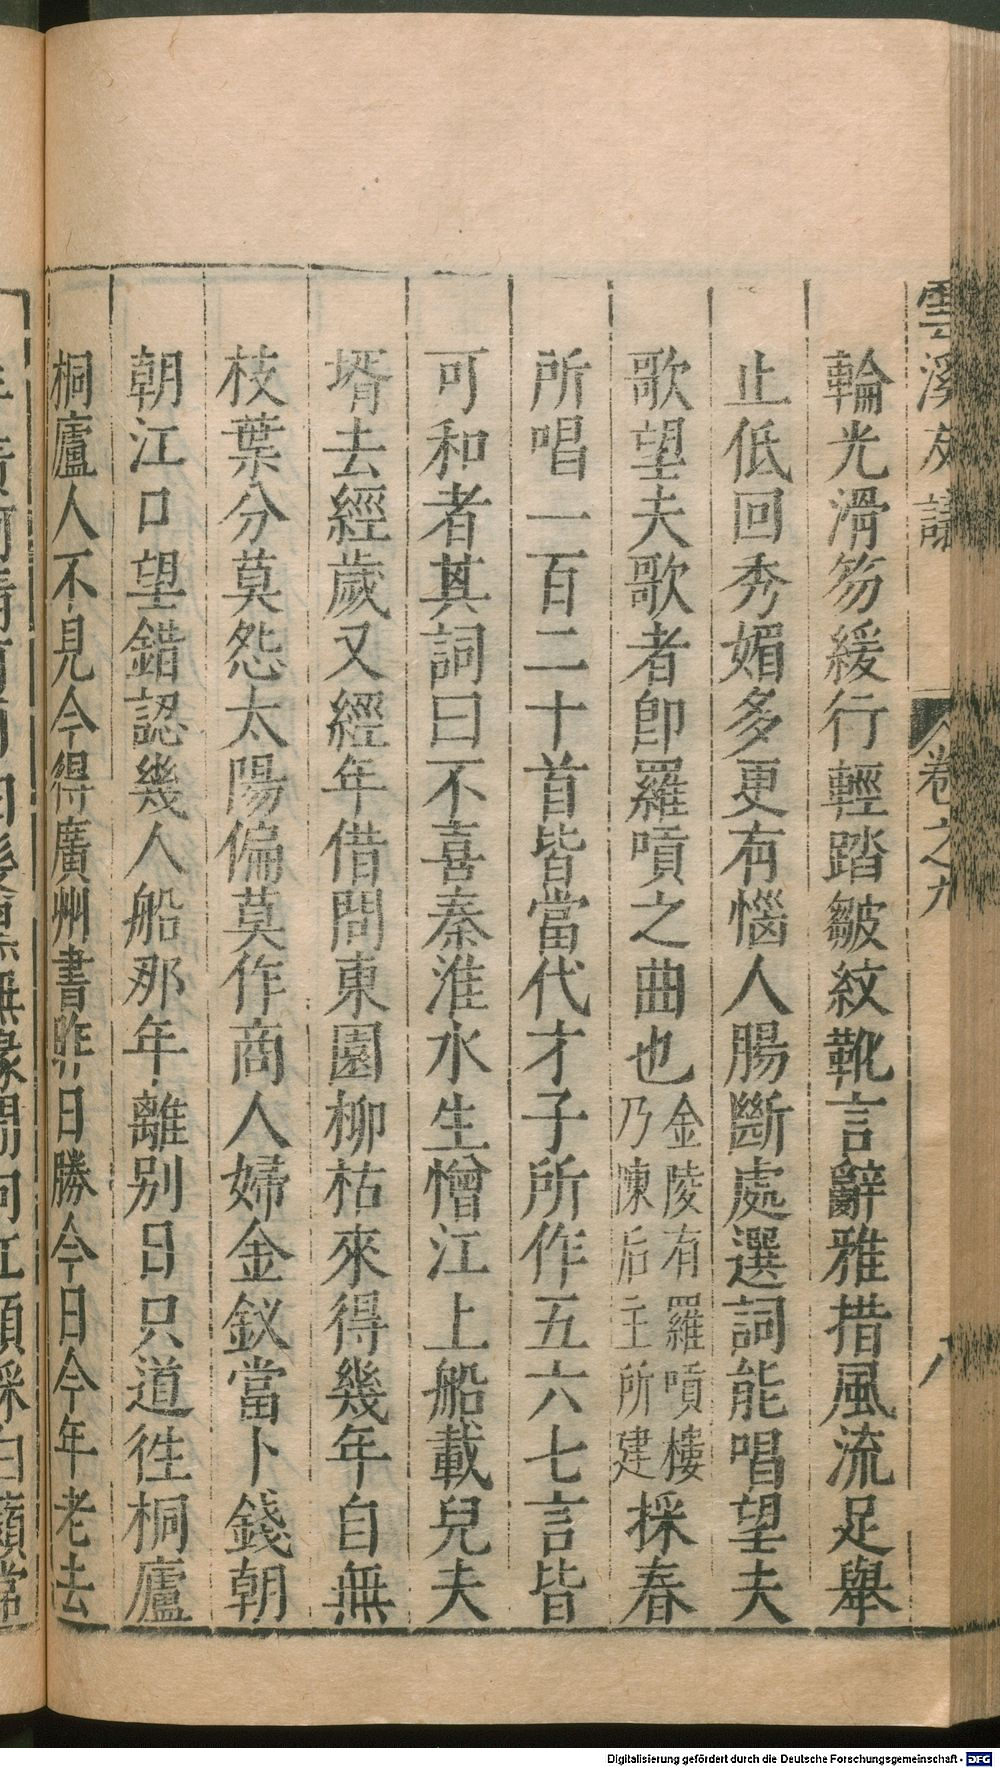 雲溪友議 卷之九 八
輪光滑笏緩行輕踏皺紋靴言辭雅措風流足舉
止低回秀媚多更有惱人腸斷處選詞能唱望夫
歌望夫歌者卽羅嗊之曲也金陵有羅嗊樓乃陳后主所建採春
所唱一百二十首皆當代才子所作五六七言皆
可和者其詞曰不喜秦淮水生憎江上船載兒夫
壻去經歲又經年借問東園柳枯來得幾年自無
枝葉分莫怨太陽偏莫作商人婦金釵當卜錢朝
朝江口望錯認幾人船那年離別日只道往桐廬
桐廬人不見今得廣州書昨日勝今日今年老去
Digitalisierung gefördert durch die Deutsche Forschungsgemeinschaft - DFG